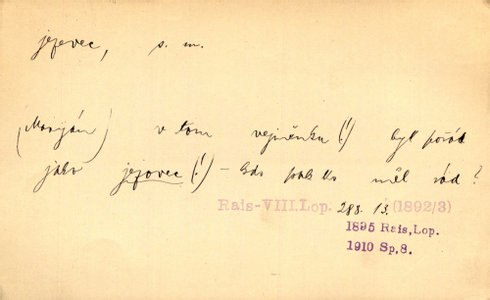 jezovec, s. m.
(Marijan) v tom vejměnku (!) byl pořád
jako jezovec (!) – kdo pak ho měl rád?
Rais-VIII,Lop. 283. 13. (1892/3)
1895 Rais,Lop.
1910 Sp,8.